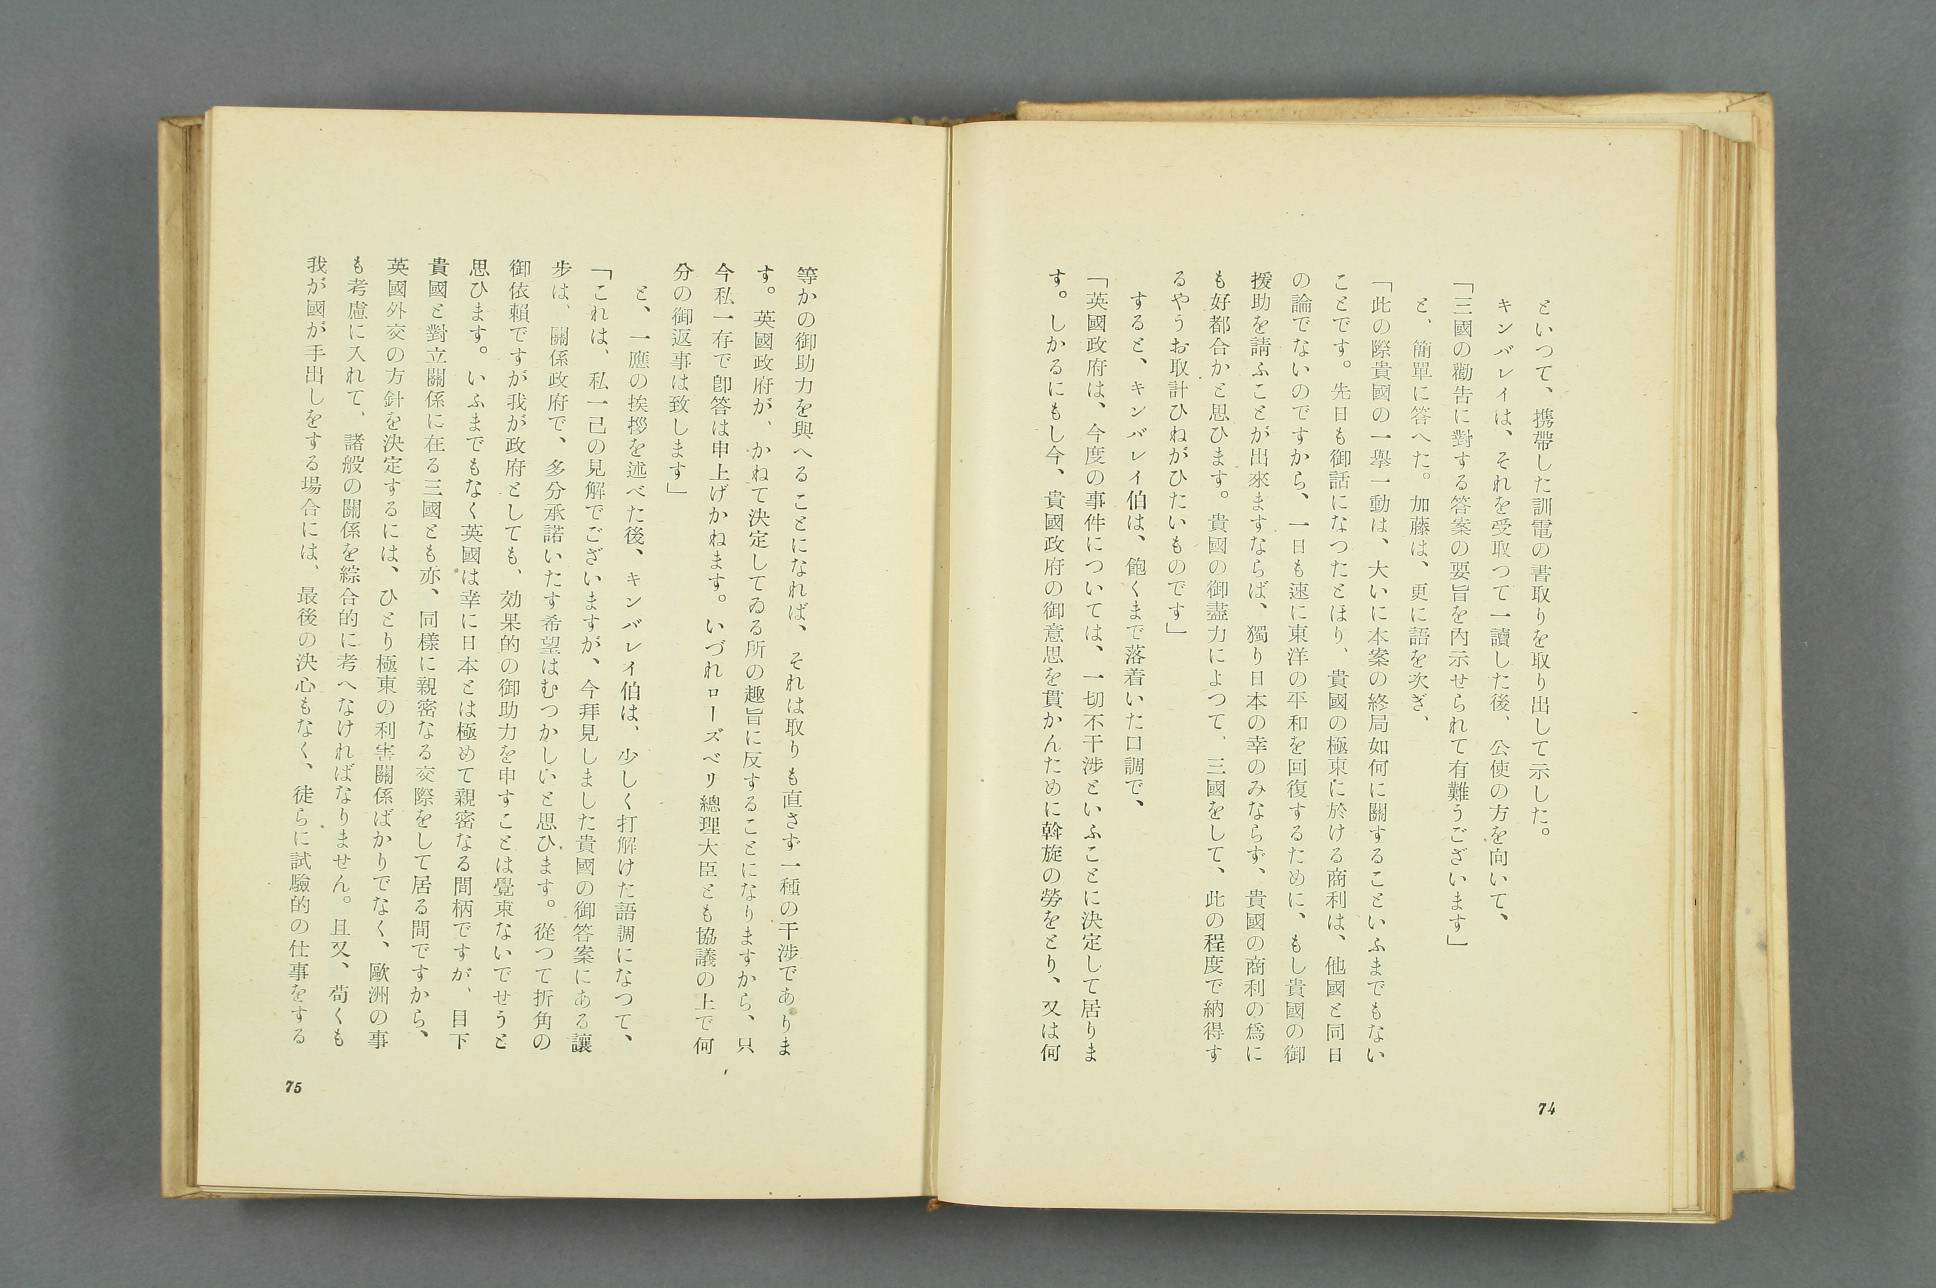 といつて、携帶した訓電の書取りを取り出して示した。
キンバレイは、それを受取つて一讀した後、公使の方を向いて、
「三國の勸告に對する答案の要旨を內示せられて有難うございます」
と、簡單に答へた。加藤は、更に語を次ぎ、
「此の際貴國の一擧一動は、大いに本案の終局如何に關することいふまでもない
ことです。先日も御話になつたとほり、貴國の極東に於ける商利は、他國と同日
の論でないのですから、一日も速に東洋の平和を回復するために、もし貴國の御
援助を請ふことが出來ますならば、獨り日本の幸のみならず、貴國の商利の爲に
も好都合かと思ひます。貴國の御盡力によつて、三國をして、此の程度で納得す
るやうお取計ひねがひたいものです」
すると、キンバレイ伯は、飽くまで落着いた口調で、
「英國政府は、今度の事件については、一切不干涉といふことに決定して居りま
す。しかるにもし今、貴國政府の御意思を貫かんために斡旋の勞をとり、又は何
74
等かの御助力を與へることになれば、それは取りも直さず一種の干涉でありま
す。英國政府が、かねて決定してゐる所の趣旨に反することになりますから、只
今私一存で卽答は申上げかねます。いづれローズベリ總理大臣とも協議の上で何
分の御返事は致します」
と、一應の挨拶を述べた後、キンバレイ伯は、少しく打解けた語調になつて、
「これは、私一己の見解でございますが、今拜見しました貴國の御答案にある讓
步は、關係政府で、多分承諾いたす希望はむつかしいと思ひます。從つて折角の
御依賴ですが我が政府としても、効果的の御助力を申すことは覺束ないでせうと
思ひます。いふまでもなく英國は幸に日本とは極めて親密なる間柄ですが、目下
貴國と對立關係に在る三國とも亦、同樣に親密なる交際をして居る間ですから、
英國外交の方針を決定するには、ひとり極東の利害關係ばかりでなく、歐洲の事
も考慮に入れて、諸般の關係を綜合的に考へなければなりません。且又、苟くも
我が國が手出しをする場合には、最後の決心もなく、徒らに試驗的の仕事をする
75